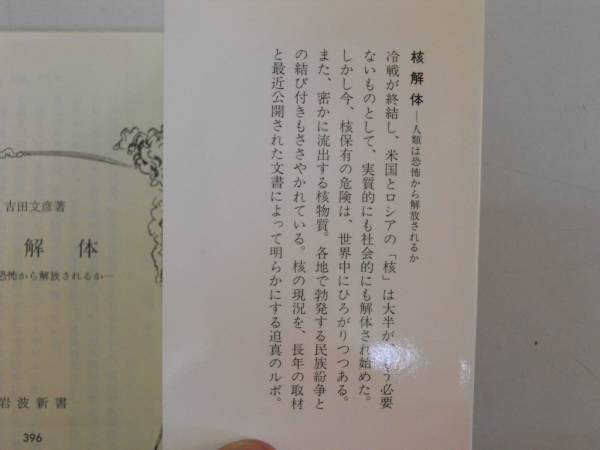 核解体―人類は恐怖から解放されるか
冷戦が終結し、米国とロシアの「核」は大半が、もう必要
ないものとして、実質的にも社会的にも解体され始めた。
しかし今、核保有の危険は、世界中にひろがりつつある。
また、密かに流出する核物質。各地で勃発する民族紛争と
の結び付きもささやかれている。核の現況を、長年の取材
と最近公開された文書によって明らかにする迫真のルポ。
吉田文彦著
解体
恐怖から解放されるか―
岩波新書
396